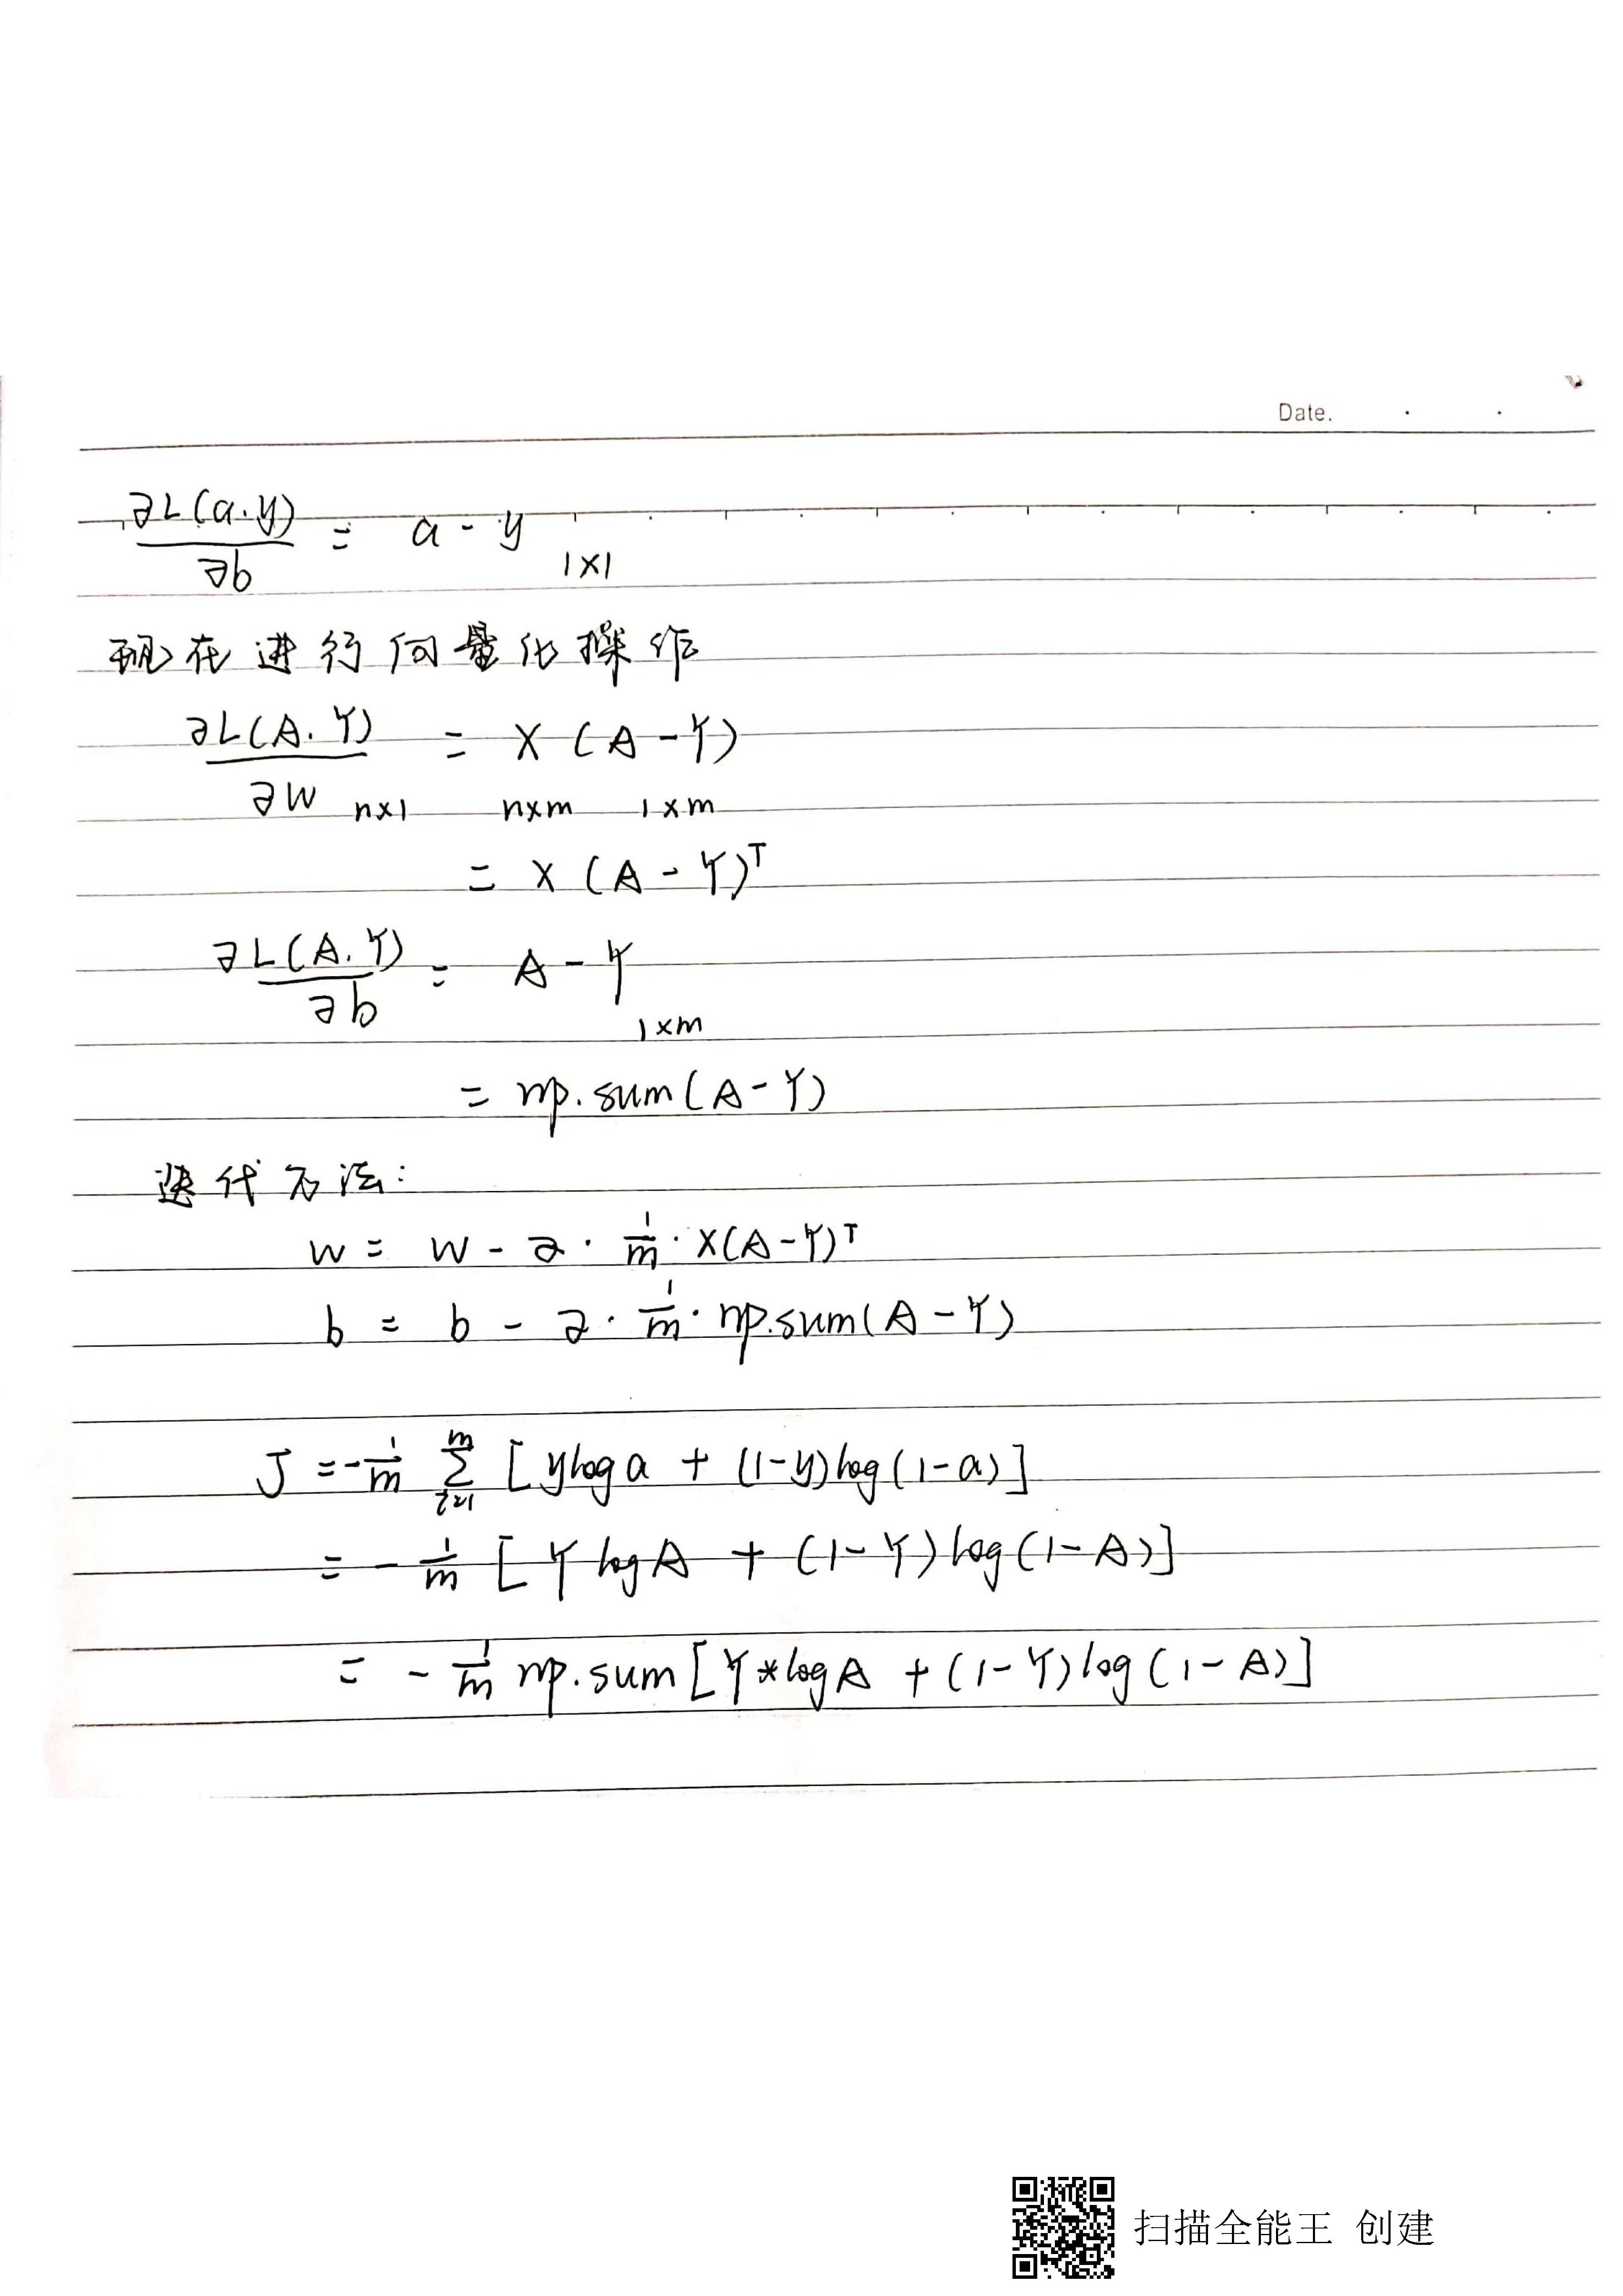 Date.
∂L(a.y)/∂b = a - y 1×1
现在进行向量化操作
∂L(A.Y)/∂w n×1 = X (A - Y) n×m 1×m
= X (A - Y)ᵀ
∂L(A.Y)/∂b = A - Y 1×m
= np.sum(A - Y)
迭代方法:
w = w - ∂ · 1/m · X(A - Y)ᵀ
b = b - ∂ · 1/m · np.sum(A - Y)
J = -1/m ∑_{i=1}^{m} [ylog a + (1-y)log(1-a)]
= - 1/m [Y log A + (1-Y) log(1-A)]
= - 1/m np.sum[Y*log A + (1-Y) log(1-A)]
扫描全能王 创建